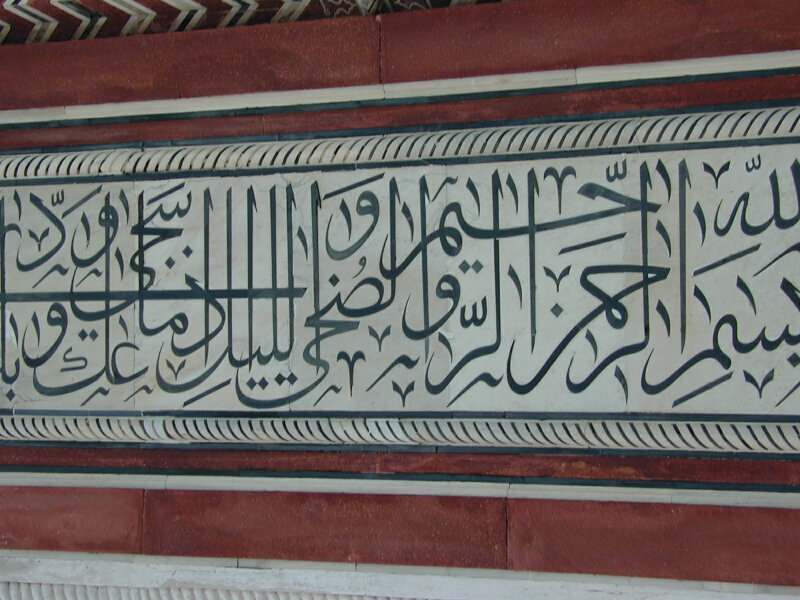 بسم الله الرحمن الرحيم والضحى والليل إذا سجى ما ودعك